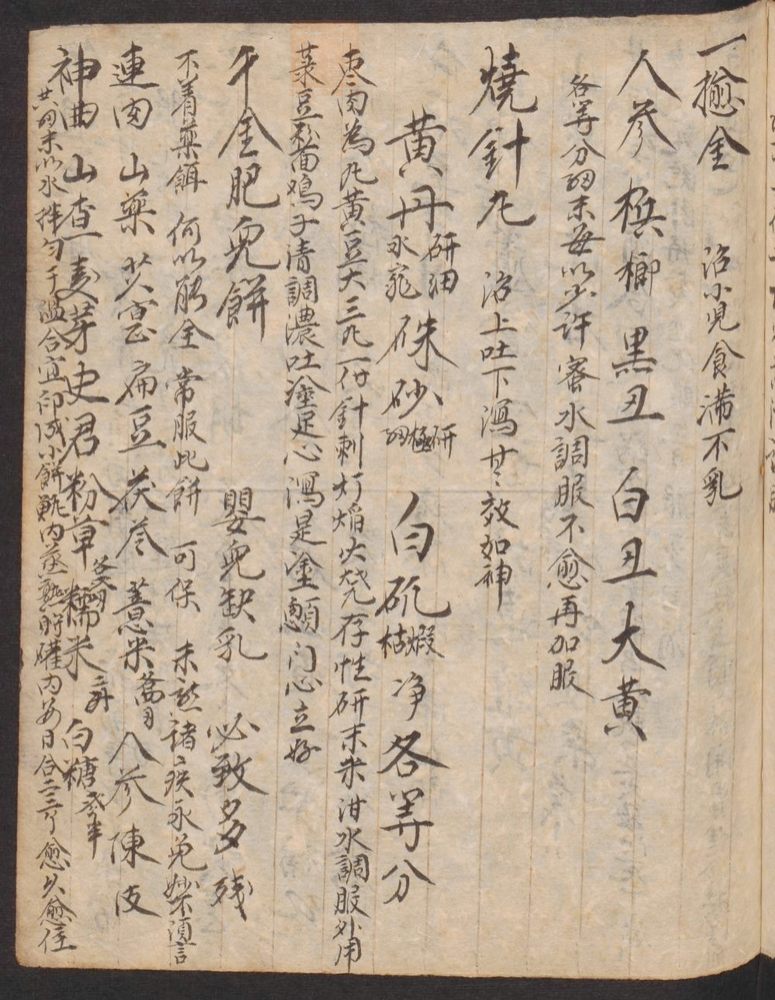 一捻金　治小児食滿不乳
人参　檳榔　黒丑　白丑　大黄
各等分細末每以少許蜜水調服不愈再加服
燒針丸　治上吐下瀉甚效如神
黄丹研細水飛　硃砂研極細　白矾煅枯　净各等分
枣肉為丸黄豆大三丸一付針刺灯焰火烧存性研末米泔水調服外用
菉豆粉面鸡子清調濃吐塗足心瀉是塗顖门心立好
千金肥兒餅　嬰兒缺乳　必致多残
不着藥餌　何以能全　常服此餅　可保　未然諸疾永免妙不須言
連肉　山藥　芡實　扁豆　茯苓　薏米各四　人参　陳皮
神曲　山查　麦芽　史君　粉草各　糯米二升　白糖
共四末以水拌匀干濕合宜印成小餅甑内蒸熟貯礶内每日合二三个愈久愈佳